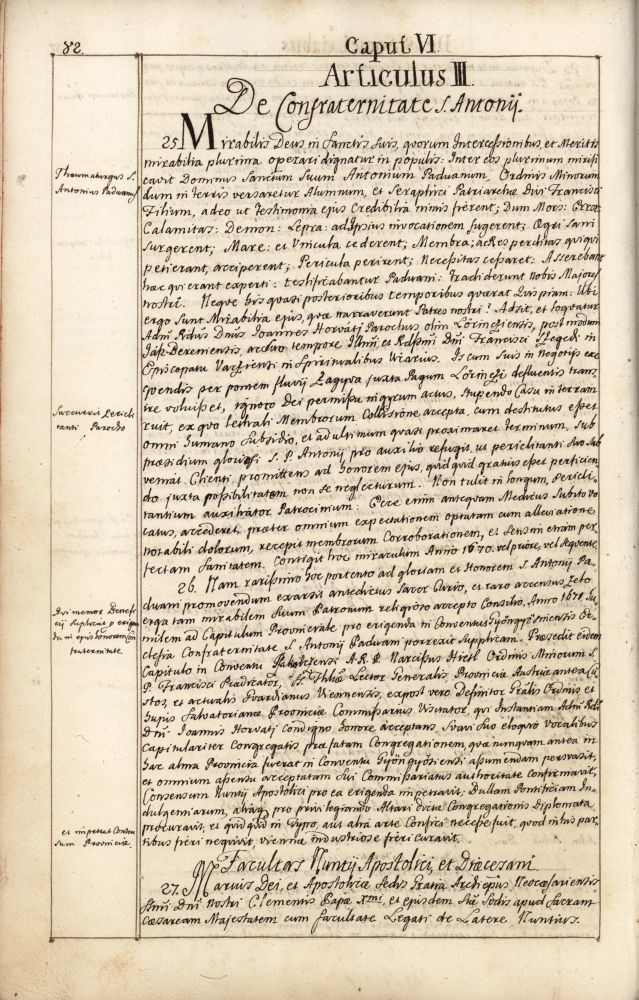 82.
Caput VI
Articulus III
De Confraternitate S. Antonij.
Thaumaturgus S.
Antonius Paduanus
25. Mirabilis Deus in Sanctis suis, quorum Intercessionibus, et Meritis
mirabilia plurima operari dignatur in populis: Inter eos plurimum mirifi
cavit Dominus Sanctum Suum Antonium Paduanum, Ordinis Minorum
dum in terris versaretur Alumnum, et Seraphici Patriarchæ Divi Francisci
Filium, adeo ut testimonia ejus Credibilia nimis fierent; Dum Mors: Error:
Calamitas: Demon: Lepra: ad Ipsius invocationem fugerent; Ægri Sani
Surgerent; Mare: et Vincula cederent; Membra; ac Res perditas quiqui
petierant, acciperent; Pericula perirent; Necessitas cessaret: Asserebant
hæc qui erant experti: testificabantur Paduani: Tradiderunt nobis Majores
nostri. Neque his quasi posterioribus temporibus quærat Quispiam: Ubi
ergo Sunt Mirabilia ejus, quæ narraverunt Patres nostri? Adsit, et loquatur
Admodum Rdus Dnus Joannes Horvati Parochus olim Lörincziensis, postmodum
Jász-Bereniensis, tempore Illmi, et Rdssmi Dni Francisci Szegedi in
Episcopatu Vacziensi in Spiritualibus Vicarius. Is cum Suis in Negotijs exe
quendis per pontem fluvij Zagyva juxta Pagum Lörinczi defluentis trans
Succurrit Pericli
tanti Parocho
ire voluisset, ignoto Dei permissu nigrum actus, stupendo Casu in terram
ruit, ex quo lethali Membrorum Collisione accepta, cum destitutus esset
omni humano Subsidio, et ad ultimum quasi proximaret terminum, Sub
præsidium gloriosi S. P. Antonij pro auxilio refugit, ut periclitanti Suo Sub
veniat Clienti, promittens ad honorem ejus, quidquid gratius esset perficien
do juxta possibilitatem non se neglecturum. Non tulit in longum, Pericli
tantium auxiliator Patrocinium: Ecce enim antequam Medicus Subito vo
catus, accederet, præter omnium expectationem optatam cum alleviatione
notabili dolorum, recepit membrorum Corroborationem, et Sensim etiam per
fectam Sanitatem. Contigit hoc miraculum Anno 1670. vel priore, vel Sequente.
Dei memor Benefi
cij Suplicat pro erigen
da in ejus honorem Con
fraternitate.
26. Nam rarissimo hoc portento ad gloriam et Honorem S. Antonij Pa
duani promovendum exarsit antedictus Sacer Curio, et raro accensus Zelo
erga tam mirabilem Suum Patronum religioso accepto Consilio, Anno 1671. Hu
milem ad Capitulum Provinciale pro erigenda in Conventus Gyöngyösiensis Ec
clesia Confraternitate S. Antonij Paduani porrexit Supplicam. Præsedit eidem
Capitulo in Conventu A. R. P. Narcissus Hietl Ordinis Minorum S.
P. Francisci Prædicator, Sæ Thliæ Lector Generalis, Provinciæ Austriæ antea Cu
stos, et actualis Guardianus Viennensis, expost vero Definitor Gralis Ordinis et
hujus Salvatorianæ Provinciæ Commissarius Visitator, qui Instantiam Admi Rdi
Dni Joannis Horvati Condigno honore acceptans, Suavi Suo eloquio Vocalibus
Capitulariter Congregatis præfatam Congregationem, quæ nunquam antea in
hac alma Provincia fuerat in Conventu Gyöngyösiensi assumendam persvasit,
et omnium assensu acceptatam Sui Commissariatus authoritate confirmavit,
Consensum Nuntij Apostolici pro ea erigenda impetravit: Bullam Pontificiam In
dulgentiarum, aliaq, pro privilegiando Altari dictæ Congregationis Diplomata
procuravit, et quidquid in Typo, aut alia arte Confici necesse fuit, quod in his par
et impetrat Consen
sum Provinciæ.
tibus fieri nequivit, Viennæ industriose fieri curavit.
Facultas Nuntij Apostolici, et Diœcesani.
27. Marius Dei, et Apostolicæ Sedis Gratia Archiepus Neocæsariensis
Ssmi Dni Nostri Clementis Papæ Xmi, et ejusdem Stæ Sedis apud Sacram
Cæsaream Majestatem cum facultate Legati de Latere Nuntius.